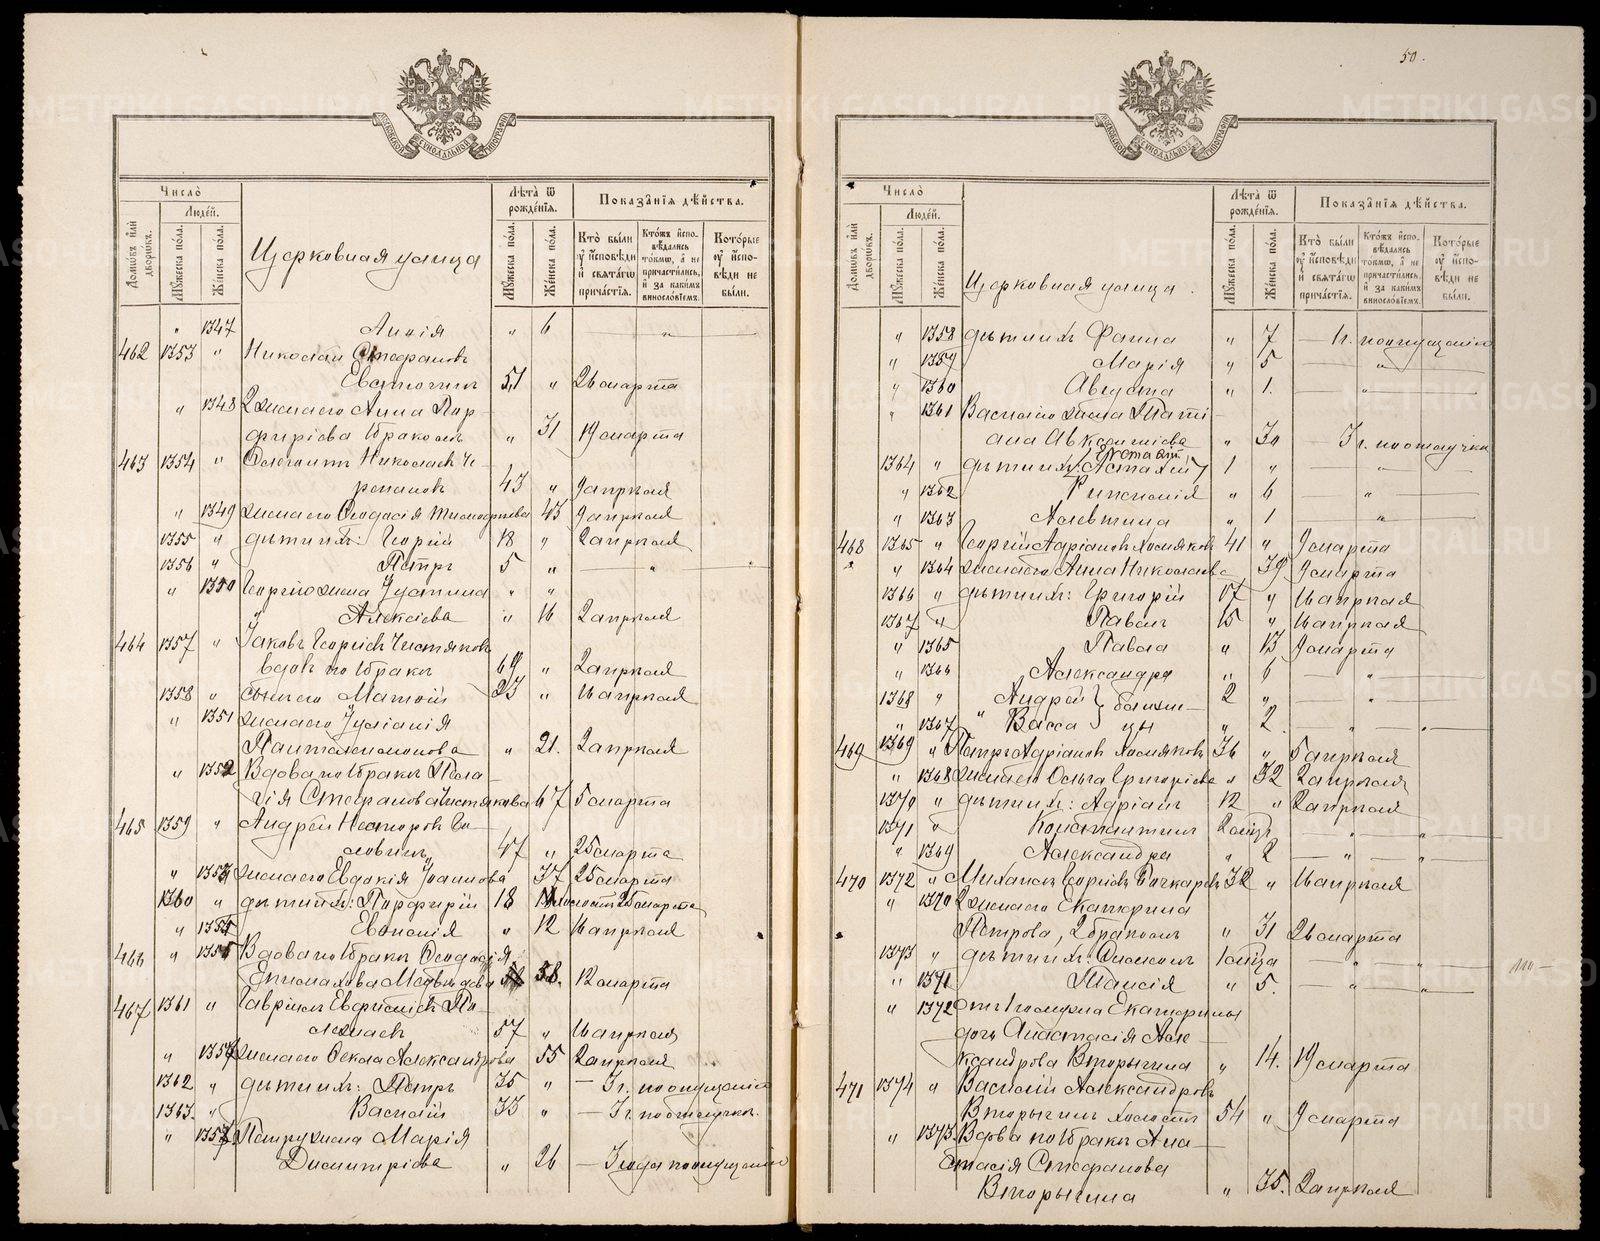 50.
Число̀
Людей.
Домѡвъ или дворѡвъ.
Мꙋжеска пола.
Женска пола.
Церковная улица
Лѣта̀ ѿ рождéнїѧ.
Мꙋжеска пола.
Женска пола.
Показа̂нїѧ дѣйства.
Кто̀ бы́ли ᲂу҆ и҆сповѣди и҆ свѧта́гѡ прича́стїѧ.
Кто́жъ и҆спо-вѣдались то́кмѡ, а҆ не причасти́лись, и҆ за каки́мъ винословїемъ.
Кото́рые ᲂу҆ и҆спо-вѣди не бы́ли.
" 1347 Анисія " 6 — " —
462 1353 " Николай Стефановъ
Евстюгинъ 51 " 26 марта
" 1348 2 жена его Анна Пор-
фиріева 1 бракомъ " 31 19 марта
463 1354 " Николаевъ Че-
репановъ 43 " 9 апрѣля
" 1349 жена его Ѳеодосія Тимофѣева " 45 9 апрѣля
1355 " дѣти ихъ: Георгій 18 " 2 апрѣля
1356 " Петръ 5 " — " — "
" 1350 Георгія жена Устина " "
Алексѣева " 16 2 апрѣля
464 1357 " Іаковъ Георгіевъ Чистяковъ
вдовъ по 1 бракѣ 69 " 2 апрѣля
1358 " сынъ его Матвѣй 23 " 16 апрѣля
" 1351 жена его Іуліанія
Пантелеимонова " 21. 2 апрѣля
" 1352 Вдова по 1 бракѣ Пела-
гія Стефанова Чистякова 67 5 марта
465 1359 " Андрей Несторовъ Го-
ловинъ 47 " 25 марта
" 1353 жена его Евдокія Іоаннова 37 25 марта
1360 " дѣти ихъ: Порфирій 18 холостъ 25 марта
" 1354 Евѳимія " 12 16 апрѣля
466 " 1355 Вдова по 1 бракѣ Ѳеодосія
Епимахова Медвѣдева 58. 12 марта
467 1361 " Гавріилъ Евѳиміевъ По-
57 " 16 апрѣля
" 1356 жена его Ѳекла Александрова 55 2 апрѣля
1362 " дѣти ихъ: Петръ 35 " — 3 г. по опущенію
1363. " Василій 33 " — 3 г. по отлучкѣ.
" 1357 Петра жена Марія
Димитріева " 26 — 3 года по опущенію
Число̀
Людей.
Домѡвъ или дворѡвъ.
Мꙋжеска пола.
Женска пола.
Церковная улица.
Лѣта̀ ѿ рождéнїѧ.
Мꙋжеска пола.
Женска пола.
Показа̂нїѧ дѣйства.
Кто̀ бы́ли ᲂу҆ и҆сповѣди и҆ свѧта́гѡ прича́стїѧ.
Кто́жъ и҆спо-вѣдались то́кмѡ, а҆ не причасти́лись, и҆ за каки́мъ винословїемъ.
Кото́рые ᲂу҆ и҆спо-вѣди не бы́ли.
" 1358 дѣти ихъ Фаина " 7 — 1 г. по опущенію
" 1359 Марія " 5 — " —
" 1360 Августа " 1. — " —
" 1361 Василія жена Тати-
ана Авксентіева " 30 — 3 г. по отлучкѣ
1364 " дѣти ихъ: Евстафій 1 " — " —
" 1362 " 6 " —
" 1363 Алевтина " 1 — " —
468 1365 " Георгій Адріановъ Хомяковъ 41 " 9 марта
" 1364 жена его Анна Николаева 39 9 марта
1366 " дѣти ихъ: Григорій 17 " 16 апрѣля
1367 " Павелъ 15 " 16 апрѣля
" 1365 Павла " 13 9 марта
" 1366 Александра " 6 — " —
1368 " Андрей } близне- 2 " — " —
" 1367 " Васса } цы " 2 — " — "
469 1369 " Петръ Адріановъ Хомяковъ 36 " 5 апрѣля
" 1368 жена его Ольга Григоріева " 32 2 апрѣля
1370 " дѣти ихъ: Адріанъ 12 " 2 апрѣля
1371 " Константинъ 2 мѣц — " — "
" 1369 Александра " 2 — " — "
470 1372 " Михаилъ Георгіевъ Бочкаревъ 32 " 16 апрѣля
" 1370 2 жена его Екатерина
Петрова, 2 бракомъ " 31 26 марта
1373 " дѣти ихъ: Симеонъ 1 мѣца — " — "
" 1371 Таисія " 5. — " — "
" 1372 Екатерины
дочь Анастасія Але-
ксандрова Вторыгина " 14. 19 марта
471 1374 " Василій Александровъ
Вторыгинъ холостъ 54 " 9 марта
" 1373. Вдова по 1 бракѣ Ана-
стасія Стефанова
Вторыгина " 35. 2 апрѣля
METRIKI.GASO-URAL.RU